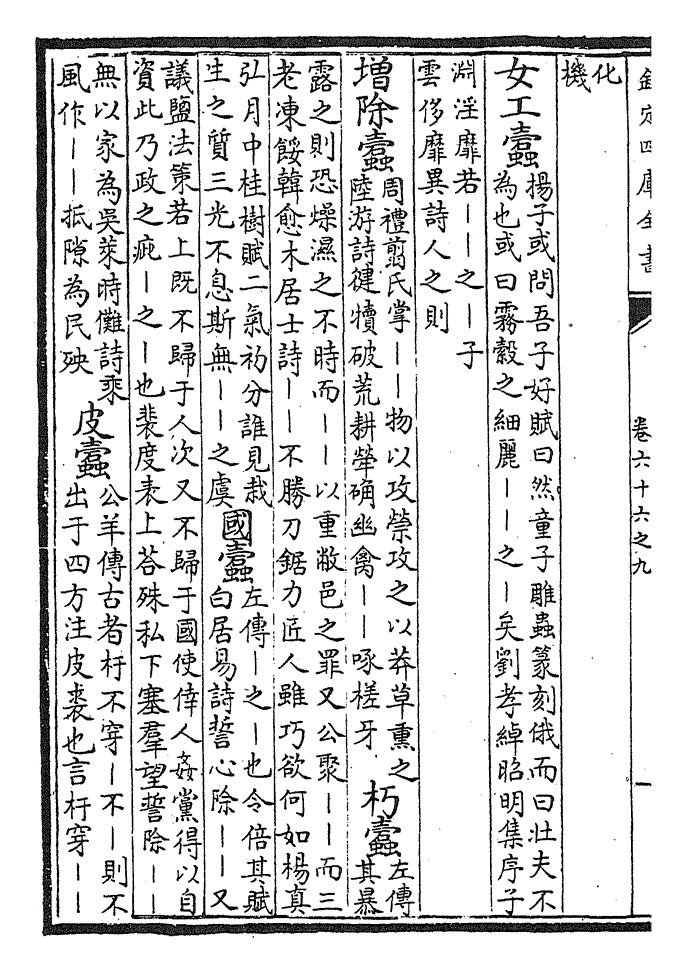 欽定四庫全書
卷六十六之九
化
機
女工蠹
揚子或問吾子好賦曰然童子雕蟲篆刻俄而曰壯夫不
為也或曰霧縠之細麗——之—矣劉孝綽昭明集序子
淵淫靡若——之—子
雲侈靡異詩人之則
增除蠹
周禮翦氏掌——物以攻禜攻之以莽草熏之
陸游詩健犢破荒耕犖确幽禽——啄槎牙
朽蠹
左傳
其暴
露之則恐燥濕之不時而——以重敝邑之罪又公聚——而三
老凍餒韓愈木居士詩——不勝刀鋸力匠人雖巧欲何如楊真
弘月中桂樹賦二氣初分誰見栽
生之質三光不息斯無——之虞
國蠹
左傳—之—也令倍其賦
白居易詩誓心除——又
議鹽法策若上既不歸于人次又不歸于國使倖人姦黨得以自
資此乃政之疵—之—也裴度表上荅殊私下塞羣望誓除——
無以家為吳萊時儺詩乘
風作——抵隙為民殃
皮蠹
公羊傳古者杅不穿—不—則不
出于四方注皮裘也言杅穿——